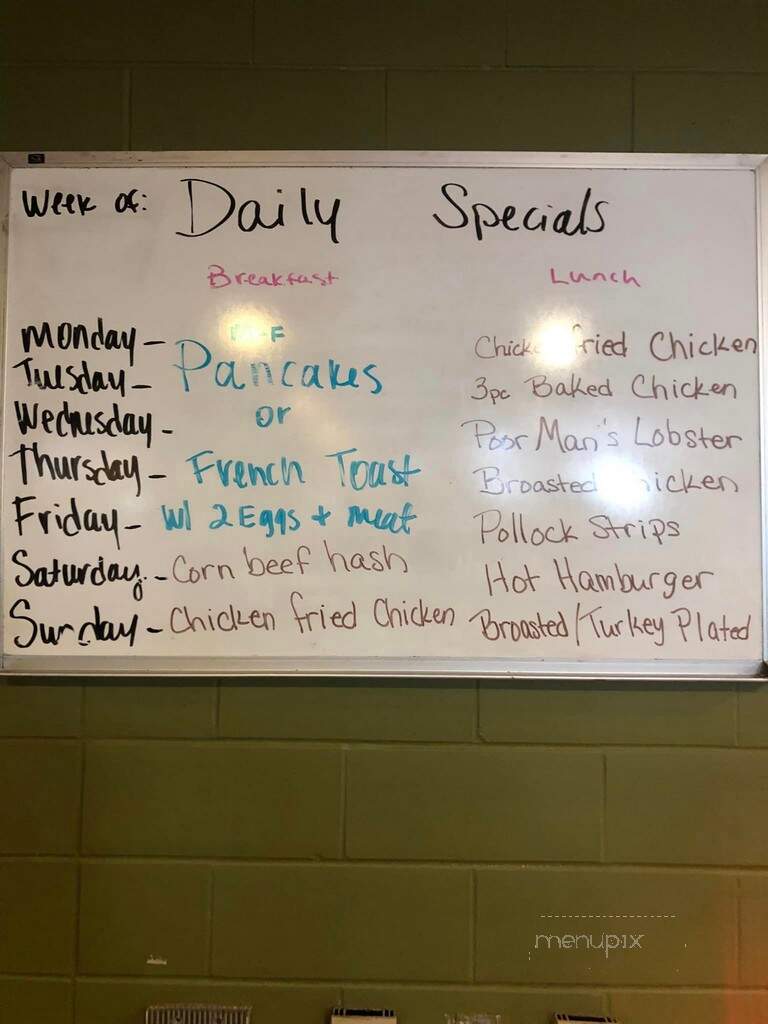 Week of: Daily Specials
Breakfast Lunch
Monday - M-F Chicken fried Chicken
Tuesday - Pancakes 3pc Baked Chicken
Wednesday - or Poor Man's Lobster
Thursday - French Toast Broasted Chicken
Friday - w/ 2 Eggs + meat Pollock Strips
Saturday - Corn beef hash Hot Hamburger
Sunday - Chicken fried Chicken Broasted/Turkey Plated
menupix